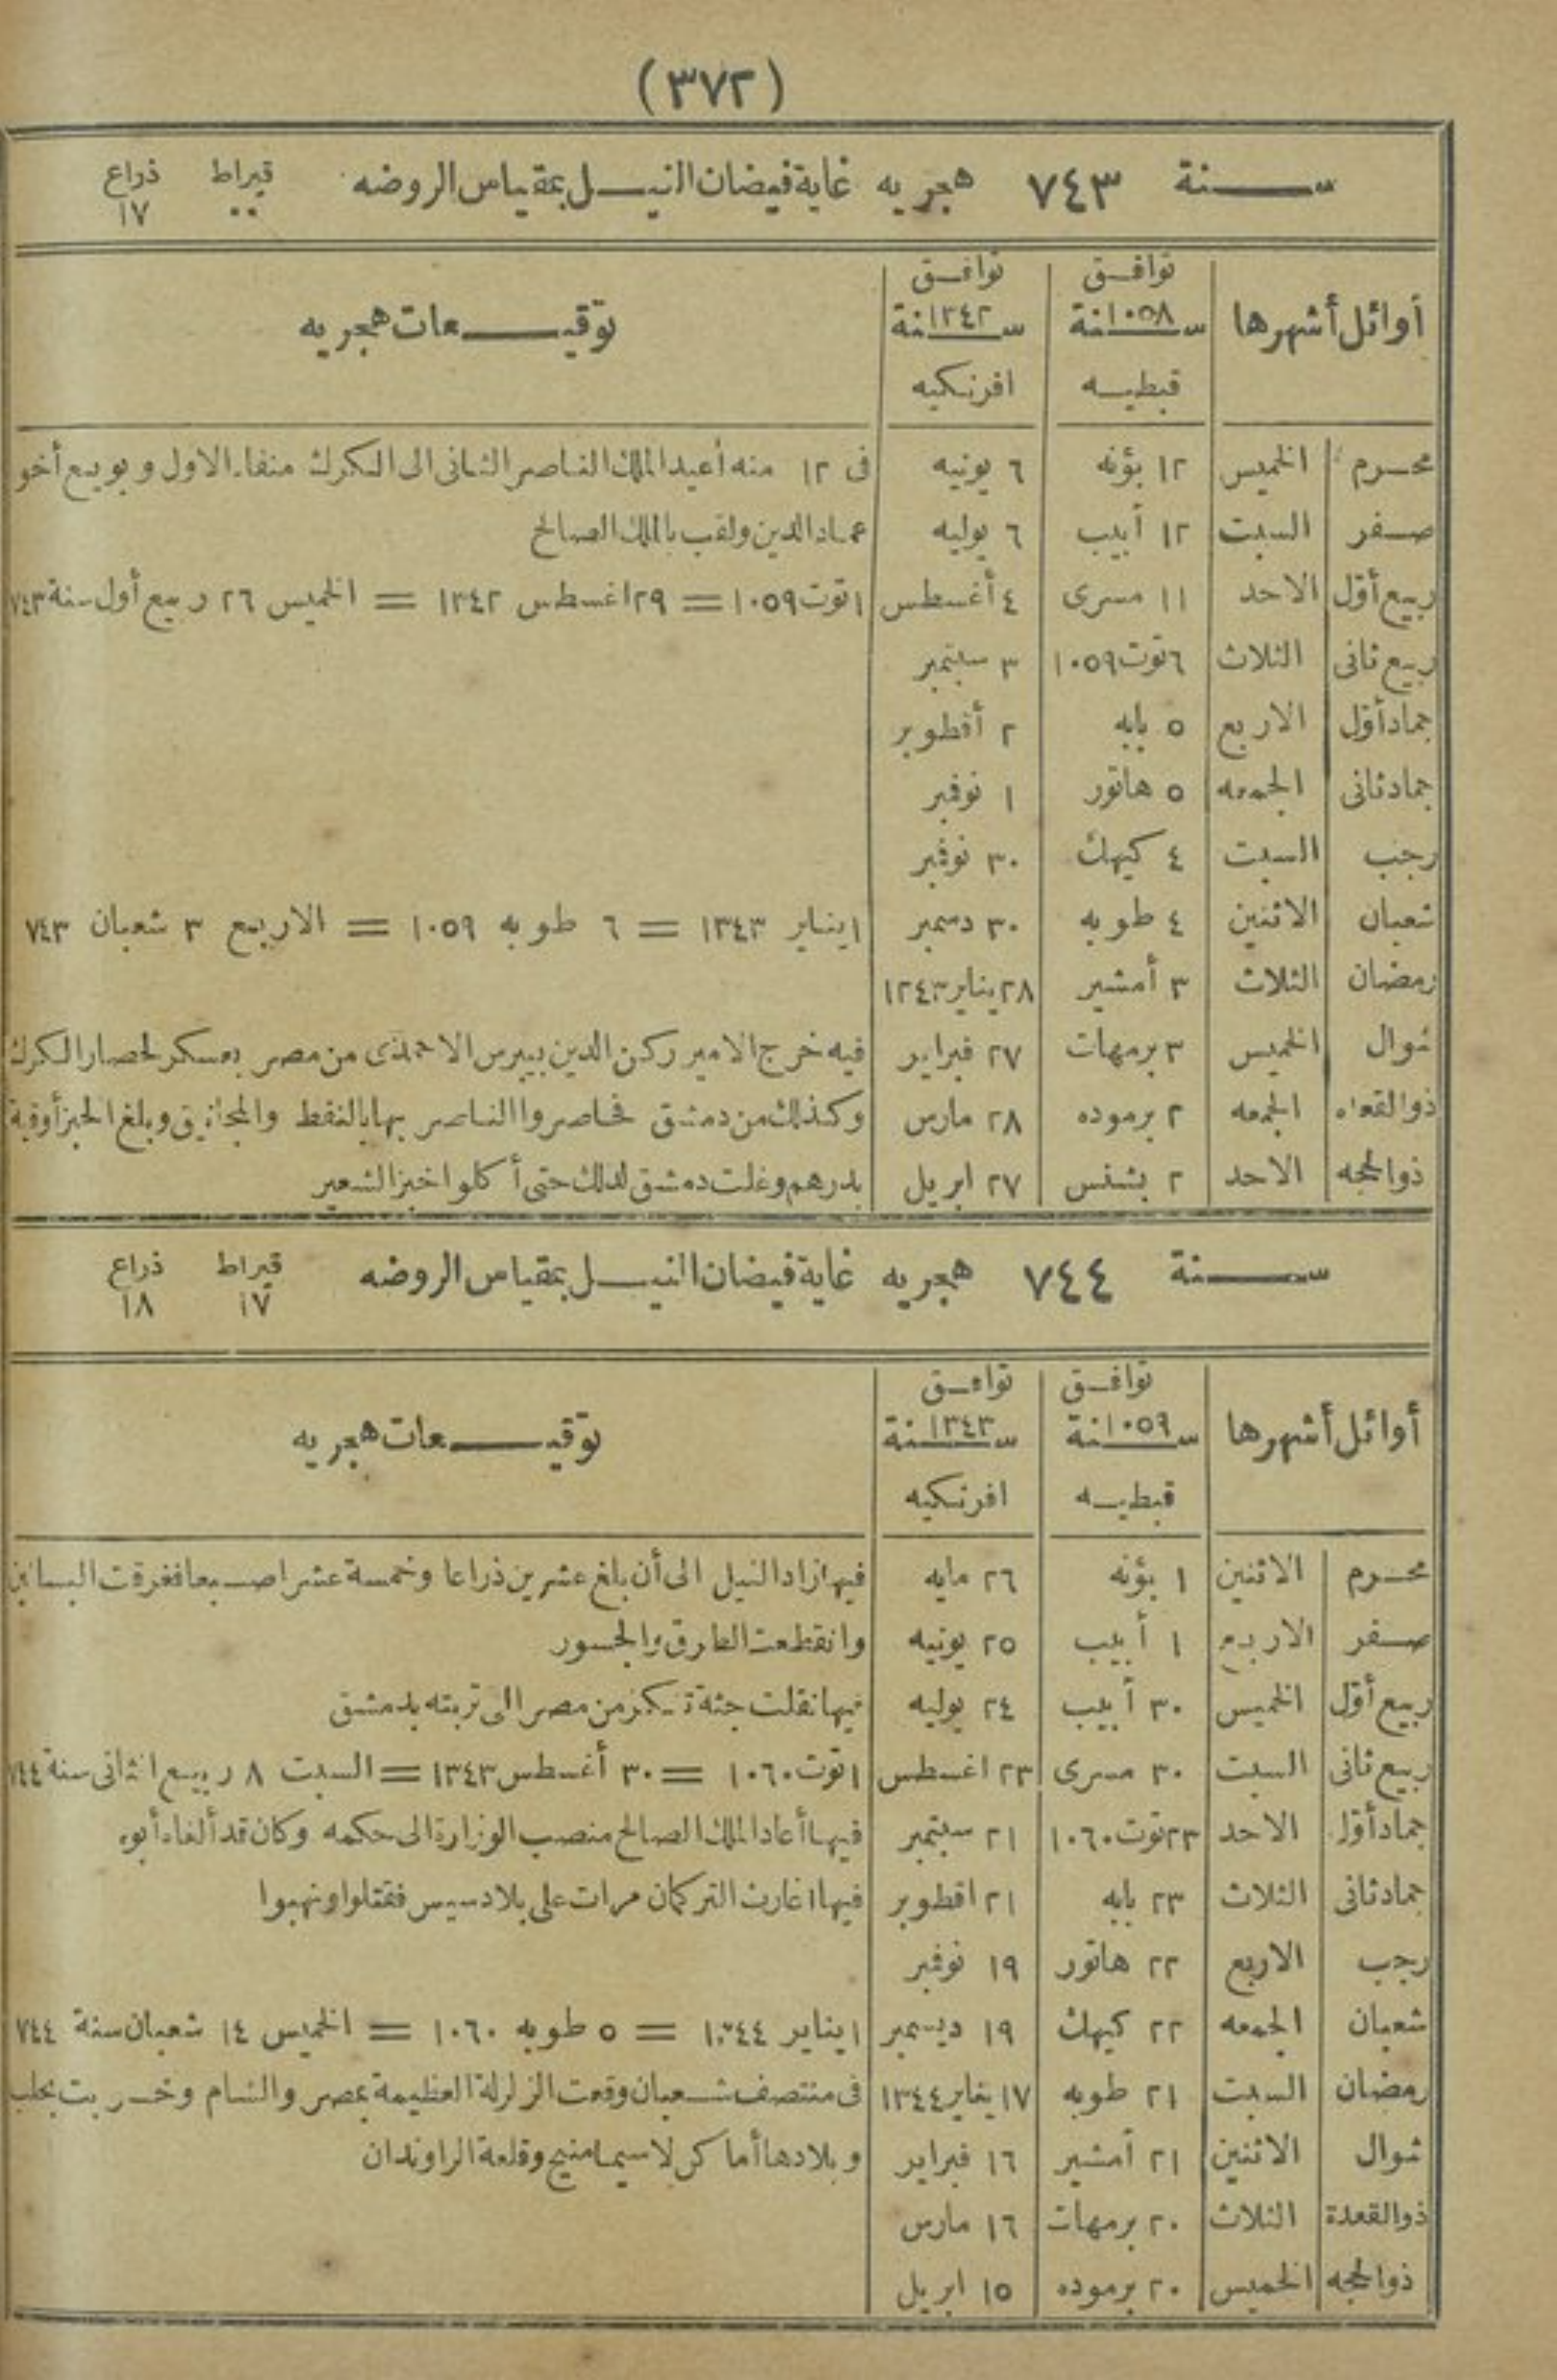 (٣٧٢)
سنة ٧٤٣ هجريه غاية فيضان النيل بمقياس الروضه قيراط ذراع
٠٠ ١٧
أوائل أشهرها توافق سنة ١٠٥٨ قبطيه توافق سنة ١٣٤٢ افرنكيه توقيعات هجريه
محرم الخميس ١٢ بؤنه ٦ يونيه فى ١٢ منه أعيد الملك الناصر الثانى الى الكرك منفاه الاول وبويع أخو
صفر السبت ١٢ أبيب ٦ يوليه عماد الدين ولقب بالملك الصالح
ربيع أول الاحد ١١ مسرى ٤ أغسطس ١ توت ١٠٥٩ = ٢٩ اغسطس ١٣٤٢ = الخميس ٢٦ ربيع أول سنة ٧٤٣
ربيع ثانى الثلاث ٦ توت ١٠٥٩ ٣ سبتمبر
جماد أول الاربع ٥ بابه ٢ أقطوبر
جماد ثانى الجمعه ٥ هاتور ١ نوفمبر
رجب السبت ٤ كيهك ٣٠ نوفمبر
شعبان الاثنين ٤ طوبه ٣٠ دسمبر ١ يناير ١٣٤٣ = ٦ طوبه ١٠٥٩ = الاربع ٣ شعبان ٧٤٣
رمضان الثلاث ٣ أمشير ٢٨ يناير ١٢٤٣
شوال الخميس ٣ برمهات ٢٧ فبراير فيه خرج الامير ركن الدين بيبرس الاحمدى من مصر بعسكر لحصار الكرك
ذو القعده الجمعه ٢ برموده ٢٨ مارس وكذلك من دمشق فحاصروا الناصر بها بالنفط والمجانيق وبلغ الخبز أوقية
ذو الحجه الاحد ٢ بشنس ٢٧ ابريل بدرهم وغلت دمشق لذلك حتى أكلوا خبز الشعير
سنة ٧٤٤ هجريه غاية فيضان النيل بمقياس الروضه قيراط ذراع
١٧ ١٨
أوائل أشهرها توافق سنة ١٠٥٩ قبطيه توافق سنة ١٣٤٣ افرنكيه توقيعات هجريه
محرم الاثنين ١ بؤنه ٢٦ مايه فيها زاد النيل الى أن بلغ عشرين ذراعا وخمسة عشر اصبعا فغرقت البساتين
صفر الاربع ١ أبيب ٢٥ يونيه وانقطعت الطرق والجسور
ربيع أول الخميس ٣٠ أبيب ٢٤ يوليه فيها نقلت جثة تنكز من مصر الى تربته بدمشق
ربيع ثانى السبت ٣٠ مسرى ٢٣ اغسطس ١ توت ١٠٦٠ = ٣٠ أغسطس ١٣٤٣ = السبت ٨ ربيع الثانى سنة ٧٤٤
جماد أول الاحد ٢٣ توت ١٠٦٠ ٢١ سبتمبر فيها أعاد الملك الصالح منصب الوزارة الى حكمه وكان قد ألغاه أبوه
جماد ثانى الثلاث ٢٣ بابه ٢١ اقطوبر فيها اغارت التركمان مرات على بلاد سيس فقتلوا ونهبوا
رجب الاربع ٢٢ هاتور ١٩ نوفمبر
شعبان الجمعه ٢٢ كيهك ١٩ ديسمبر ١ يناير ١٣٤٤ = ٥ طوبه ١٠٦٠ = الخميس ١٤ شعبان سنة ٧٤٤
رمضان السبت ٢١ طوبه ١٧ يناير ١٣٤٤ فى منتصف شعبان وقعت الزلزلة العظيمة بمصر والشام وخربت بحلب
شوال الاثنين ٢١ أمشير ١٦ فبراير وبلادها أماكن لاسيما منبج وقلعة الراوندان
ذو القعدة الثلاث ٢٠ برمهات ١٦ مارس
ذو الحجه الخميس ٢٠ برموده ١٥ ابريل